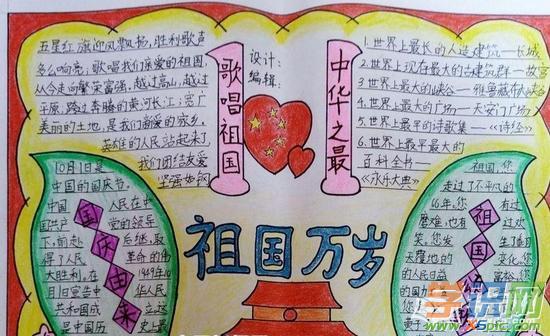 五星红旗迎风飘扬,胜利歌声
多么响亮;歌唱我们亲爱的祖国,
从今走向繁荣富强,越过高山,越过
平原,跨过奔腾的黄河长江;宽广
美丽的土地,是我们亲爱的家乡,
英雄的人民站起来了,
我们团结友爱
坚强如钢
歌唱祖国
设计:
编辑:
中华之最
1.世界上最长的人造建筑——长城
2.世界上现存最大的古建筑群——故宫
3.世界上最大的峡谷——雅鲁藏布大峡谷
4.世界上最大的广场——天安门广场
5.世界上最早的诗歌集——《诗经》
6.世界上最早最大的
百科全书——
《永乐大典》
10月1日是
中国的国庆节。
中国 人民在中
国共产 党的领导
下,前赴 后继,取
得了人民 革命的伟
大胜利,在 1949年10
月1日宣告中 华人民
共和国成 立,这
是中国历 史上最
国庆由来
祖国万岁
祖国,您
走过了不平凡的
16年,您 有过
磨难,也有 过欢
笑。您发 生了翻
天覆地的 变化。您
的人民日益 富裕,您
祖国
学识网